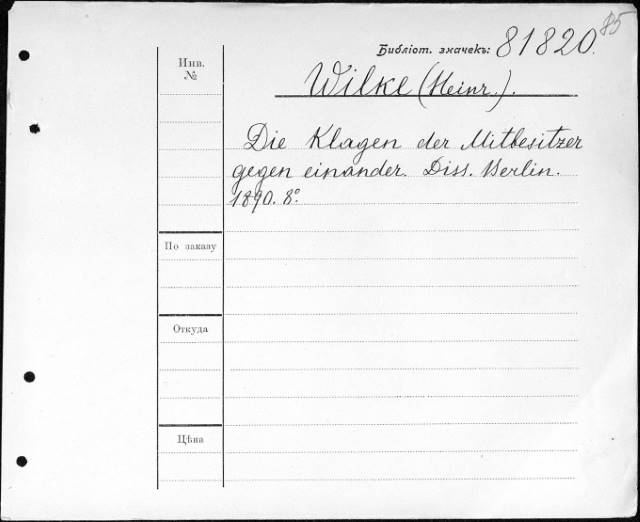 85
Библіот. значекъ: 81820.
Инв.
№
Wilke (Heinr.).
Die Klagen der Mitbesitzer
gegen einander. Diss. Berlin.
1890. 8°.
По заказу
Откуда
Цѣна